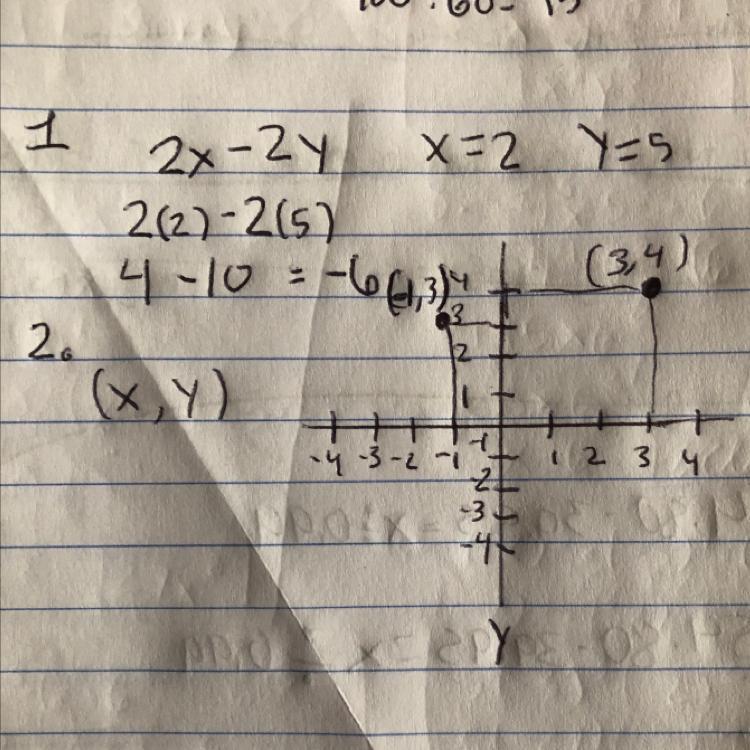 1 2x - 2y x = 2 y = 5
2(2) - 2(5)
4 - 10 = -6
2.
(x, y)
(-1,3)
(3,4)
4
3
2
1
-4 -3 -2 -1 1 2 3 4
-1
-2
-3
-4
Y